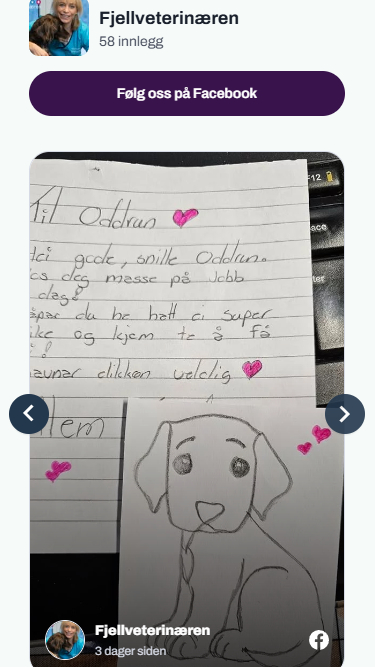 Fjellveterinæren
58 innlegg
Følg oss på Facebook
F12
Til Oddrun
Hei gode, snille Oddrun.
deg masse på Jobb
dag!
du he hatt ei super
og kjem te å få
dikkan veldig
Klem
Fjellveterinæren
3 dager siden